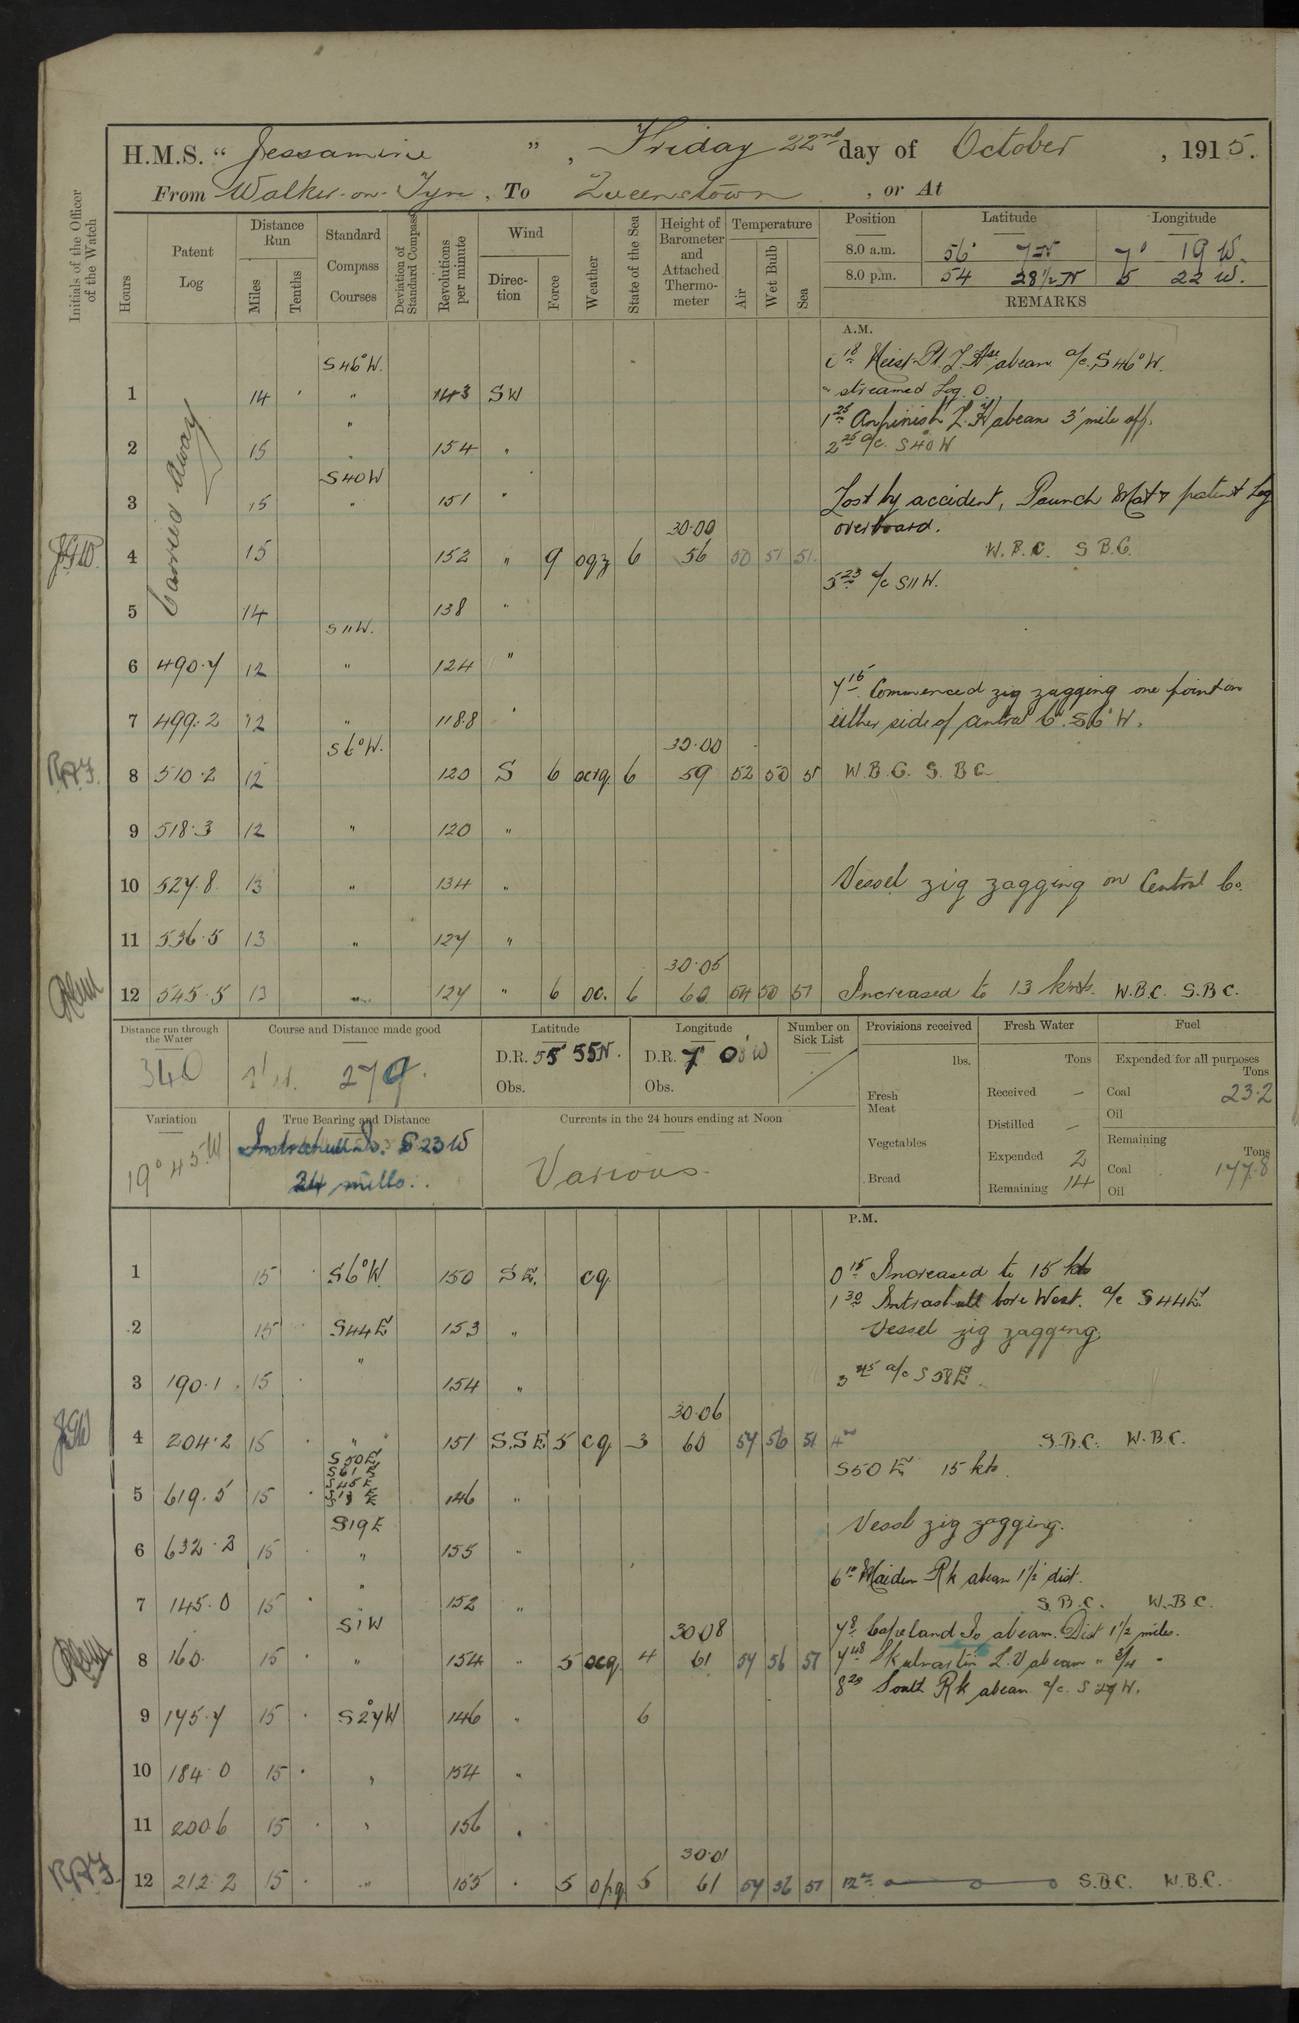 H.M.S. "Jessamine", Friday 22nd day of October, 1915.
From Walker-on-Tyne, To Queenstown, or At
Initials of the Officer of the Watch
Hours
Patent Log
Distance Run
Miles Tenths
Standard Compass Courses
Deviation of Standard Compass
Revolutions per minute
Wind
Direction Force
Weather
State of the Sea
Height of Barometer and Attached Thermometer
Temperature
Air Wet Bulb Sea
Position Latitude Longitude
8.0 a.m. 56° 7 N 7° 19 W.
8.0 p.m. 54 28½ N 5 22 W.
REMARKS
A.M.
S46°W. abeam a/c. S46°W.
1 14 " 143 SW " streamed Log 0.
Carried Away
" 1 25 abeam 3' mile off.
2 15 " 154 " 2 25 a/c. S40W
S40W
3 15 " 151 " Lost by accident, Paunch Mat & patent Log
30.00 overboard.
J.G.W. 4 15 152 " 9 6 56 50 51 51. W.B.C. S.B.C.
5 23 a/c S11W.
5 14 138 "
S11W.
6 490.7 12 " 124 "
7 15 Commenced zig zagging one point on
7 499.2 12 " 118.8 " either side of Co. S6°W.
S6°W. 30.00
8 510.2 12 120 S 6 ocrq 6 59 52 50 51 W.B.C. S.B.C.
9 518.3 12 " 120 "
10 527.8 13 " 134 " Vessel zig zagging on Central Co.
11 536.5 13 " 127 "
30.05
12 545.5 13 " 127 " 6 oc. 6 60 54 50 51 Increased to 13 knots. W.B.C. S.B.C.
Distance run through the Water
340
Course and Distance made good
279.
Latitude
D.R. 55 55N.
Obs.
Longitude
D.R. 7 0 W
Obs.
Number on Sick List
Provisions received
lbs.
Fresh Meat
Vegetables
Bread
Fresh Water
Tons
Received —
Distilled —
Expended 2
Remaining 14
Fuel
Expended for all purposes
Tons
Coal 23.2
Oil
Remaining
Tons
Coal 177.8
Oil
Variation
19° 45' W
True Bearing and Distance
S 23 W
24 mills.
Currents in the 24 hours ending at Noon
Various
P.M.
1 15 S6°W 150 SE. cq 0 15 Increased to 15 kts
1 30 bore West. a/c S44E.
2 15 S44E 153 " Vessel zig zagging.
"
3 190.1 15 154 " 3 45 a/c S58E.
30.06
4 204.2 15 " 151 S.S.E 5 cq 3 60 57 56 51 S.B.C. W.B.C.
S50E. S50E 15 kts.
S61E
S45E
5 619.5 15 146 "
S19E Vessl zig zagging.
6 632.2 15 " 155 "
" 6 10 Maiden Rk abeam 1½' dist.
7 145.0 15 152 " S.B.C. W.B.C.
S1W 30.08 7 8 Copeland Is abeam. Dist 1½ miles.
8 160. 15 " 154 " 5 ocq 4 61 57 56 51 7 48 Skulmartin L.V abeam " ¾ "
8 20 South Rk abeam a/c. S27W.
9 175.7 15 S27W 146 " 6
10 184.0 15 " 154 "
11 200.6 15 " 156 "
30.01
12 212.2 15 " 155 " 5 opq 5 61 57 56 51 12 S.B.C. W.B.C.